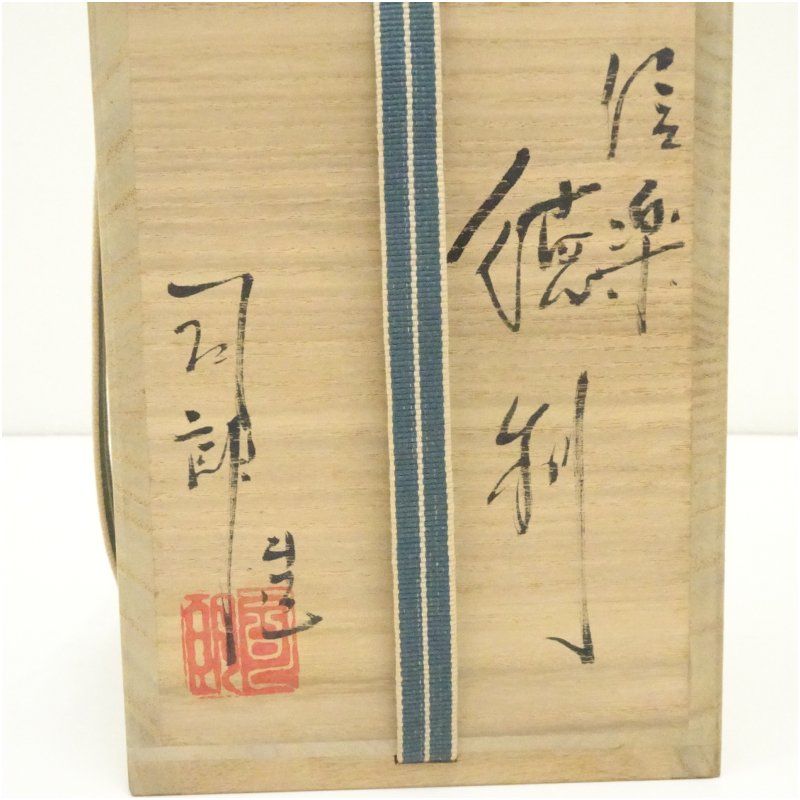 信楽
徳利
司郎造